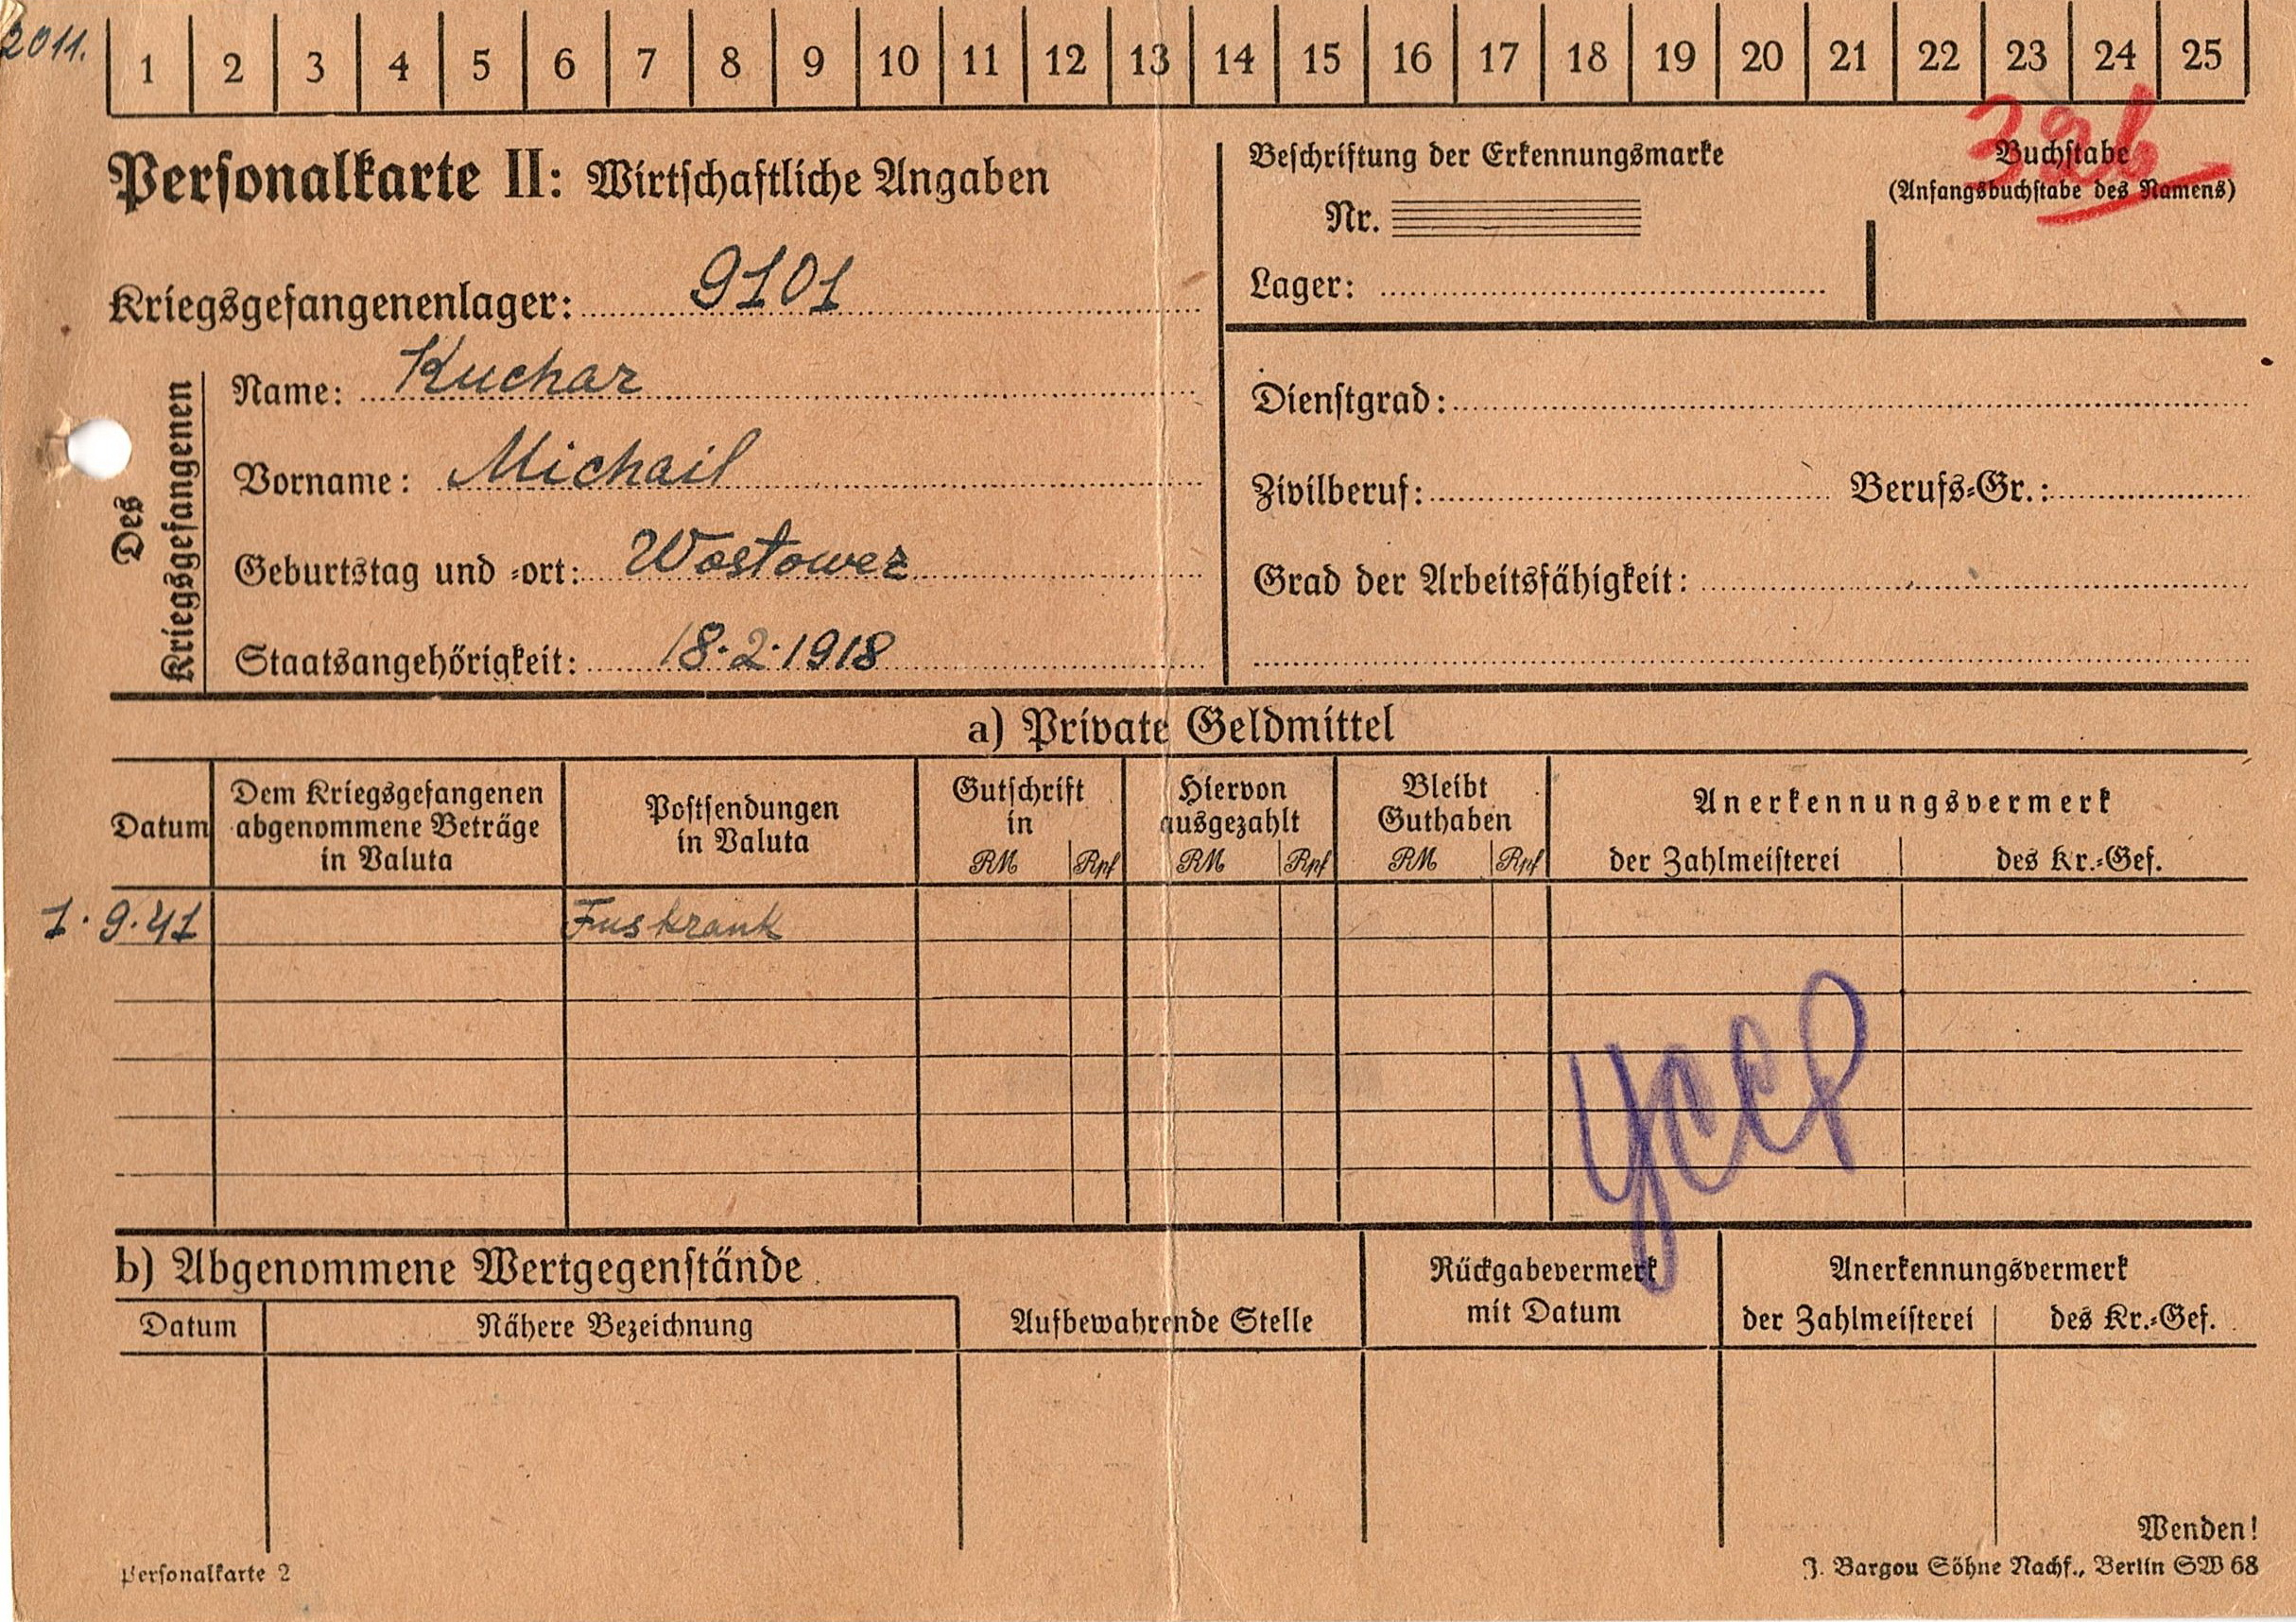 2011.
1 2 3 4 5 6 7 8 9 10 11 12 13 14 15 16 17 18 19 20 21 22 23 24 25
Personalkarte II: Wirtschaftliche Angaben
Kriegsgefangenenlager: 9101
Des Kriegsgefangenen
Name: Kuchar
Vorname: Michail
Geburtstag und -ort: Wostowez
Staatsangehörigkeit: 18.2.1918
Beschriftung der Erkennungsmarke
Nr.
Lager:
Buchstabe
(Anfangsbuchstabe des Namens)
Dienstgrad:
Zivilberuf: Berufs-Gr.:
Grad der Arbeitsfähigkeit:
a) Private Geldmittel
Datum
Dem Kriegsgefangenen
abgenommene Beträge
in Valuta
Postsendungen
in Valuta
Gutschrift
in
RM Rpf
Hiervon
ausgezahlt
RM Rpf
Bleibt
Guthaben
RM Rpf
Anerkennungsvermerk
der Zahlmeisterei des Kr.-Gef.
1.9.41 Fuskrank
УССР
b) Abgenommene Wertgegenstände
Datum Nähere Bezeichnung
Aufbewahrende Stelle
Rückgabevermerk
mit Datum
Anerkennungsvermerk
der Zahlmeisterei des Kr.-Gef.
Wenden!
Personalkarte 2
J. Bargou Söhne Nachf., Berlin SW 68